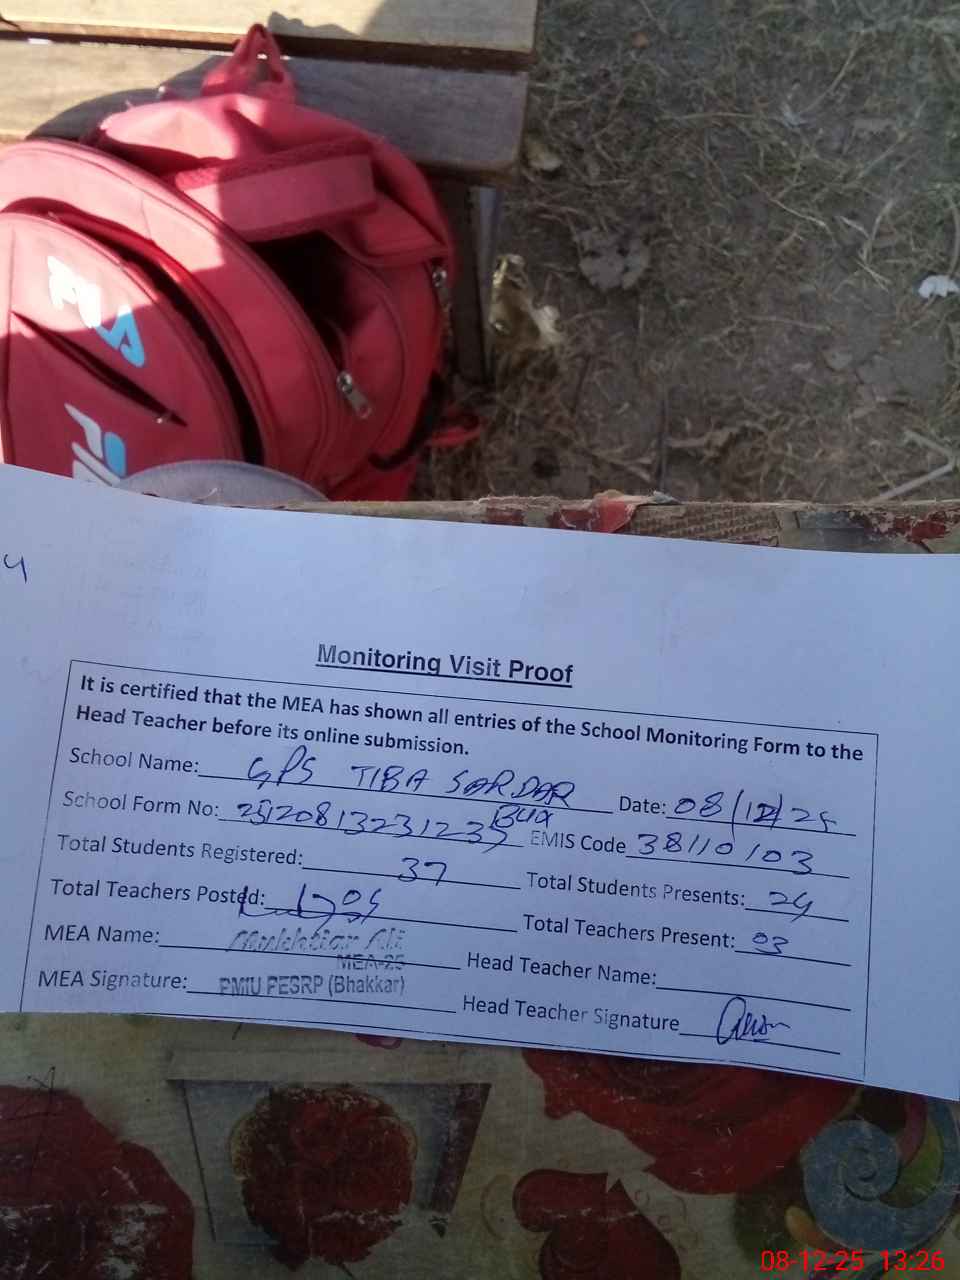 FILA
4
Monitoring Visit Proof
It is certified that the MEA has shown all entries of the School Monitoring Form to the
Head Teacher before its online submission.
School Name: GPS TIBA SARDAR BUX Date: 08/12/25
School Form No: EMIS Code 38110103
Total Students Registered: 37 Total Students Presents:
Total Teachers Posted: 05 Total Teachers Present: 03
MEA Name: Mukhtiar Ali Head Teacher Name:
MEA-25
MEA Signature: PMIU PESRP (Bhakkar) Head Teacher Signature
08-12-25 13:26